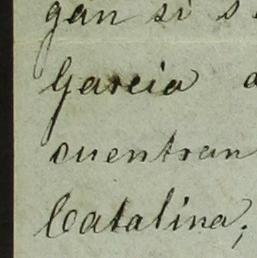 gan si s
Garcia
cuentran
Catalina;